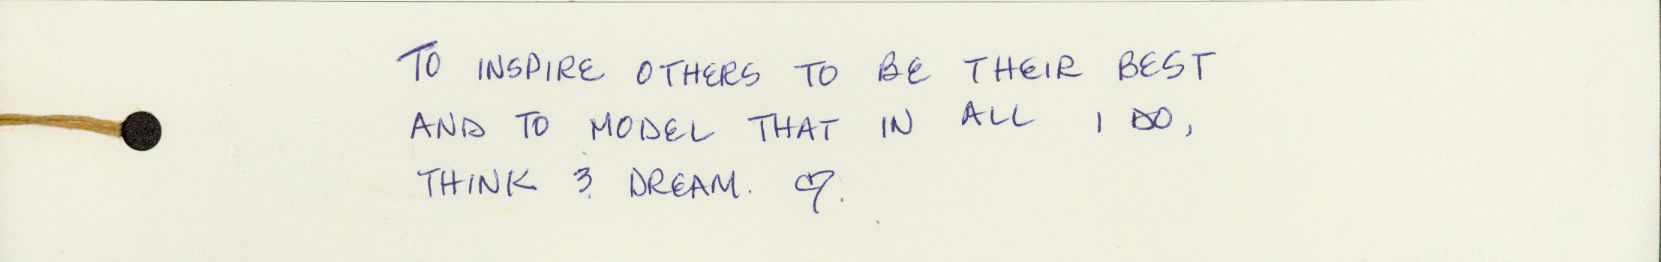 TO INSPIRE OTHERS TO BE THEIR BEST
AND TO MODEL THAT IN ALL I DO,
THINK & DREAM. ♡.